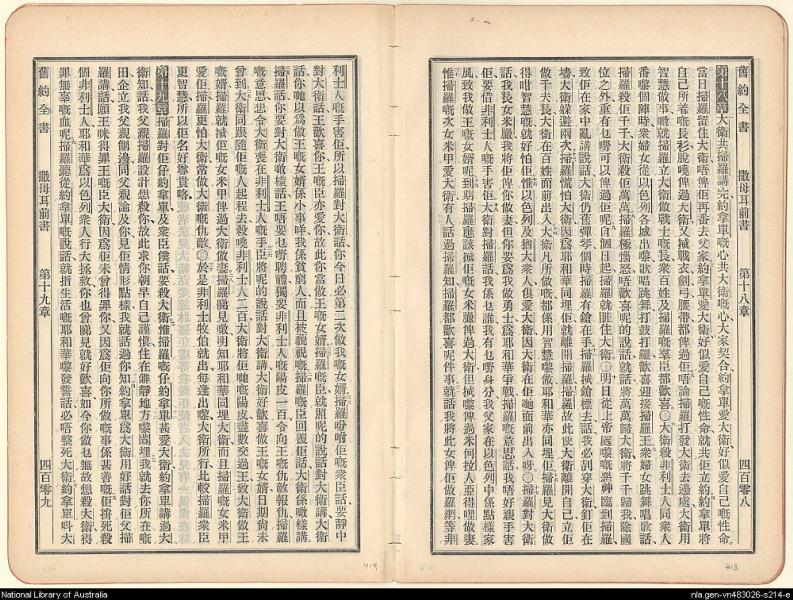 舊約全書 撒母耳前書 第十八章 四百零八
第十八章 大衛共掃羅講完約拿單嘅心共大衛嘅心大家契合約拿單愛大衛好似愛自己嘅性命
當日掃羅留住大衛唔俾佢再番去父家約拿單愛大衛好似愛自己嘅性命就共佢立約約拿單將
自己所着嘅長衫脫嘵俾過大衛又搣戰衣劍弓腰帶都俾過佢唔論掃羅打發大衛去邊處大衛用
智慧做事嚟就掃羅立大衛做戰士嘅長衆百姓及掃羅嘅羣臣都歡喜〇大衛殺非利士人同衆人
番嚟個陣時衆婦女從以色列各城出嚟歌唱跳舞打鼓打鑼歡喜迎接掃羅王衆婦女跳舞唱歌話
掃羅殺佢千千大衛殺佢萬萬掃羅極惱怒唔歡喜呢的說話就話將萬萬歸大衛將千千歸我除國
位之外重有乜嘢可以俾過佢呢自個日起掃羅就𥄫住大衛〇明日從上帝處嚟嘅惡神臨到掃羅
致佢在家中亂講說話大衛仍舊彈琴個時掃羅有鎗在手掃羅搣鎗標去話我必刮穿大衛釘佢在
墻大衛躲避兩次掃羅慌怕大衛因爲耶和華同埋佢就離開掃羅掃羅故此使大衛離開自己立佢
做千夫長大衛在百姓面前出入大衛凡所做嘅都係用智慧嚟做耶和華亦同埋佢掃羅見大衛做
得咁智慧嘅就好怕佢惟以色列及猶大衆人俱愛大衛因佢在佢哋面前出入呀〇掃羅對大衛
話我長女米臘我將佢俾你做妻但你要爲我做勇士爲耶和華爭戰掃羅嘅意思話我唔好親手害
佢要借非利士人嘅手害佢大衛對掃羅話我係乜誰我有乜嘢身分我父家在以色列中係點樣家
風致我做王嘅女婿呢到期掃羅應該搣佢嘅女米臘俾過大衛但搣嚟俾過米何拉人亞得哩做妻
惟掃羅嘅次女米甲愛大衛有人話過掃羅知掃羅都歡喜呢件事就話我將此女俾佢做羅網等非
418
舊約全書 撒母耳前書 第十九章 四百零九
利士人嘅手害佢所以掃羅對大衛話你今日必第二次做我嘅女婿掃羅吩咐佢嘅衆臣話要靜中
對大衛話王歡喜你王嘅臣亦愛你故此你當做王嘅女婿掃羅嘅臣就照呢的說話對大衛講大衛
話你哋以爲做王嘅女婿係小事咩我係貧窮人而且被藐視嘅掃羅嘅臣回覆佢話大衛係噉樣講
掃羅話你要對大衛噉樣話王唔要乜嘢聘禮獨要非利士人嘅陽皮一百令向王嘅仇敵報仇掃羅
嘅意思想令大衛喪在非利士人嘅手臣將呢的說話對大衛講大衛好歡喜做王嘅女婿日期尙未
曾到大衛同跟隨佢嘅人起程去殺嘵非利士人二百大衛將佢哋嘅陽皮盡數交過王致大衛做王
嘅婿掃羅就搣佢嘅女米甲俾過大衛做妻掃羅見嚟明知耶和華同埋大衛而且掃羅嘅女米甲
愛佢掃羅更怕大衛常做大衛嘅仇敵〇於是非利士牧伯就出每逢出嚟大衛所行比較掃羅衆臣
更智慧所以佢名好尊貴咯
第十九章 掃羅對佢仔約拿單及衆臣僕話要殺大衛惟掃羅嘅仔約拿單甚愛大衛約拿單講過大
衛知話我父親掃羅設計想殺你故此求你朝早自己謹愼住在僻靜地方嚟匿埋我就去你所在嘅
田企立我父親側邊同父親論及你見佢情形點樣我就話過你知約拿單爲大衛用好話對佢父掃
羅講話願王咪得罪王嘅臣大衛因爲佢未曾得罪你又因爲佢向你所做嘅事係甚善嘅佢捹死殺
個非利士人耶和華爲以色列衆人行大拯救你也曾睇見就好歡喜如今你做乜無故想殺大衛得
罪無辜嘅血呢掃羅聽從約拿單嘅說話就指生活嘅耶和華嚟發誓話必唔整死大衛約拿單呌大
419
National Library of Australia
nla.gen-vn483026-s214-e